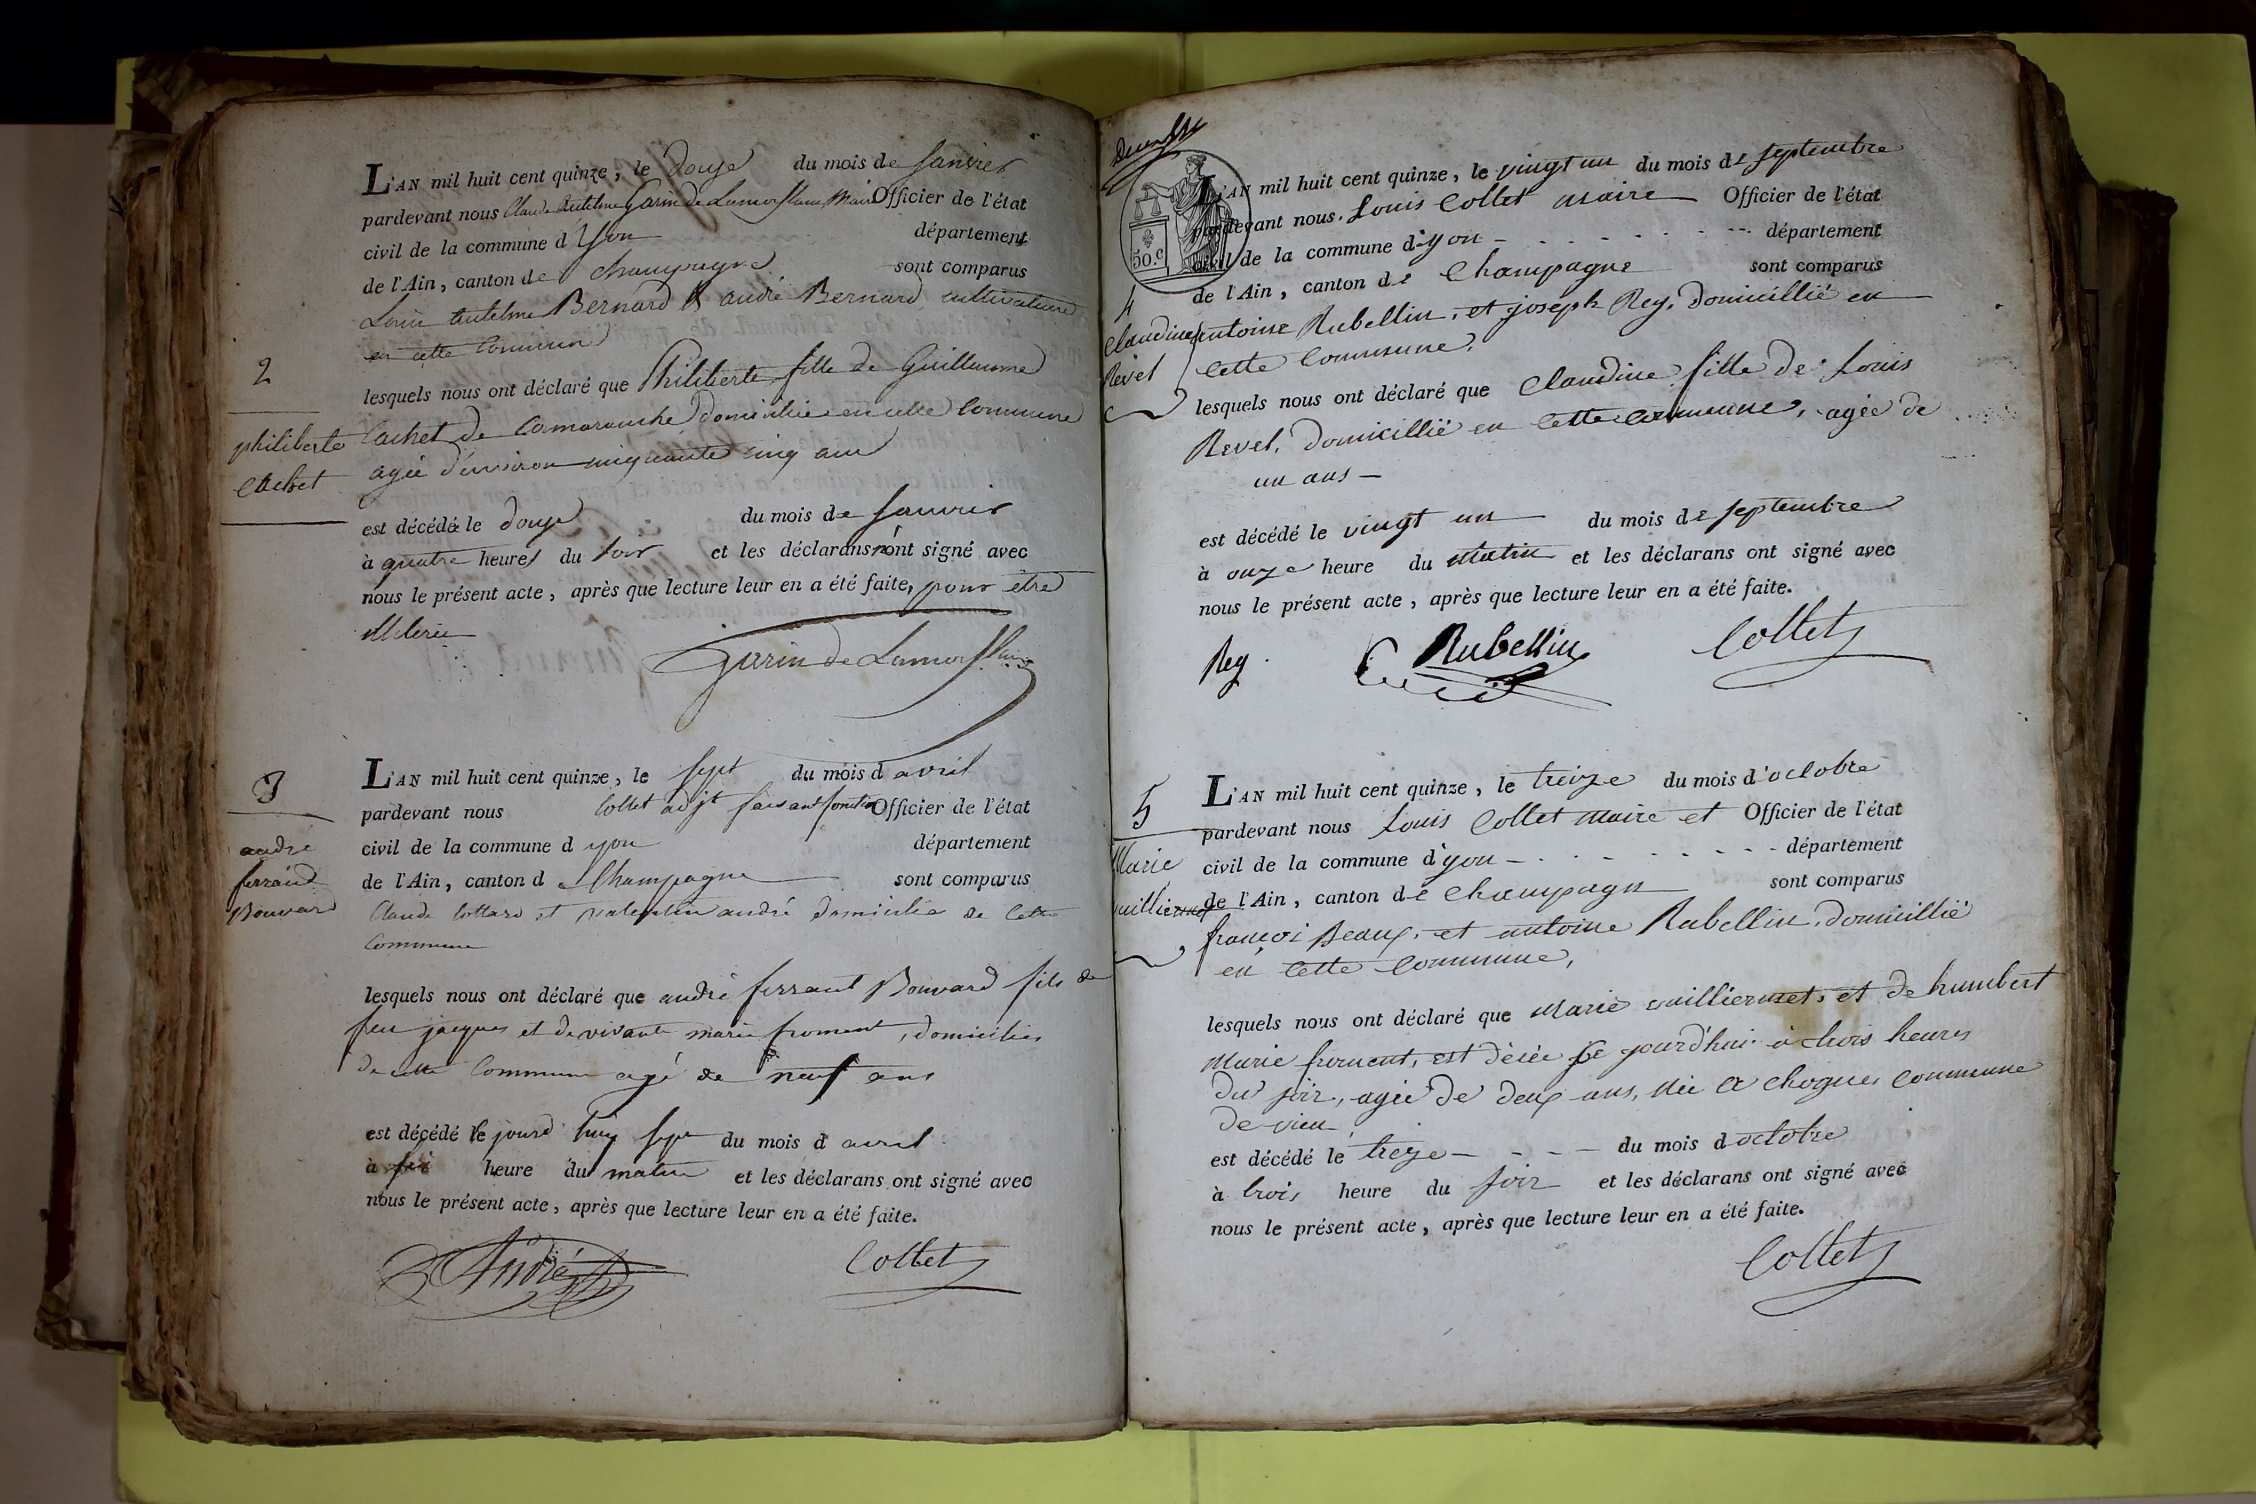 L'AN mil huit cent quinze, le douze du mois de Janvier
pardevant nous Claude Antelme Garin de Lamorflans Maire Officier de l'état
civil de la commune d'yon département
de l'Ain, canton de Champagne sont comparus
Louis antelme Bernard & andré Bernard cultivateurs
en cette Commune
2
philiberte
Cachet
lesquels nous ont déclaré que Philiberte fille de Guillaume
Cachet de domiciliée en cette Commune
agée d'environ cinquante cinq ans
est décédée le douze du mois de Janvier
à quatre heures du soir et les déclarans n'ont signé avec
nous le présent acte, après que lecture leur en a été faite, pour être
illiteré
Garin de Lamorflans
3
andré
ferrand
Bouvard
L'AN mil huit cent quinze, le sept du mois d avril
pardevant nous Collet adjt faisant fonction Officier de l'état
civil de la commune d yon département
de l'Ain, canton d e Champagne sont comparus
Claude Cottard et valentin andré domicilié de Cette
Commune
lesquels nous ont déclaré que andré ferrant Bouvard fils de
feu jacques et de vivante marie froment, domiciliés
de cette Commune agé de neuf ans
est décédé le jourd'huy sept du mois d avril
à heure du matin et les déclarans ont signé avec
nous le présent acte, après que lecture leur en a été faite.
André Collet
50.c
L'AN mil huit cent quinze, le vingt un du mois de septembre
pardevant nous. Louis Collet maire Officier de l'état
civil de la commune d'yon département
de l'Ain, canton de Champagne sont comparus
4
Claudine
Revel
antoine Rubellin, et joseph Rey, domicillié en
cette commune.
lesquels nous ont déclaré que Claudine fille de Louis
Revel, domicillié en cette commune, agée de
un ans —
est décédé le vingt un du mois de septembre
à onze heure du matin et les déclarans ont signé avec
nous le présent acte, après que lecture leur en a été faite.
Rey. Rubellin Collet
5
Marie
vuilliermet
L'AN mil huit cent quinze, le treize du mois d'octobre
pardevant nous Louis Collet maire et Officier de l'état
civil de la commune d'yon département
de l'Ain, canton de Champagne sont comparus
françoi Beaux, et antoine Rubellin, domicillié
en cette commune,
lesquels nous ont déclaré que Marie vuilliermet, et de humbert
Marie froment, est dècée ce jourd'hui à trois heures
du soir, agée de deux ans, née a chogne, commune
de vieu
est décédé le treize du mois d octobre
à trois heure du soir et les déclarans ont signé avec
nous le présent acte, après que lecture leur en a été faite.
Collet